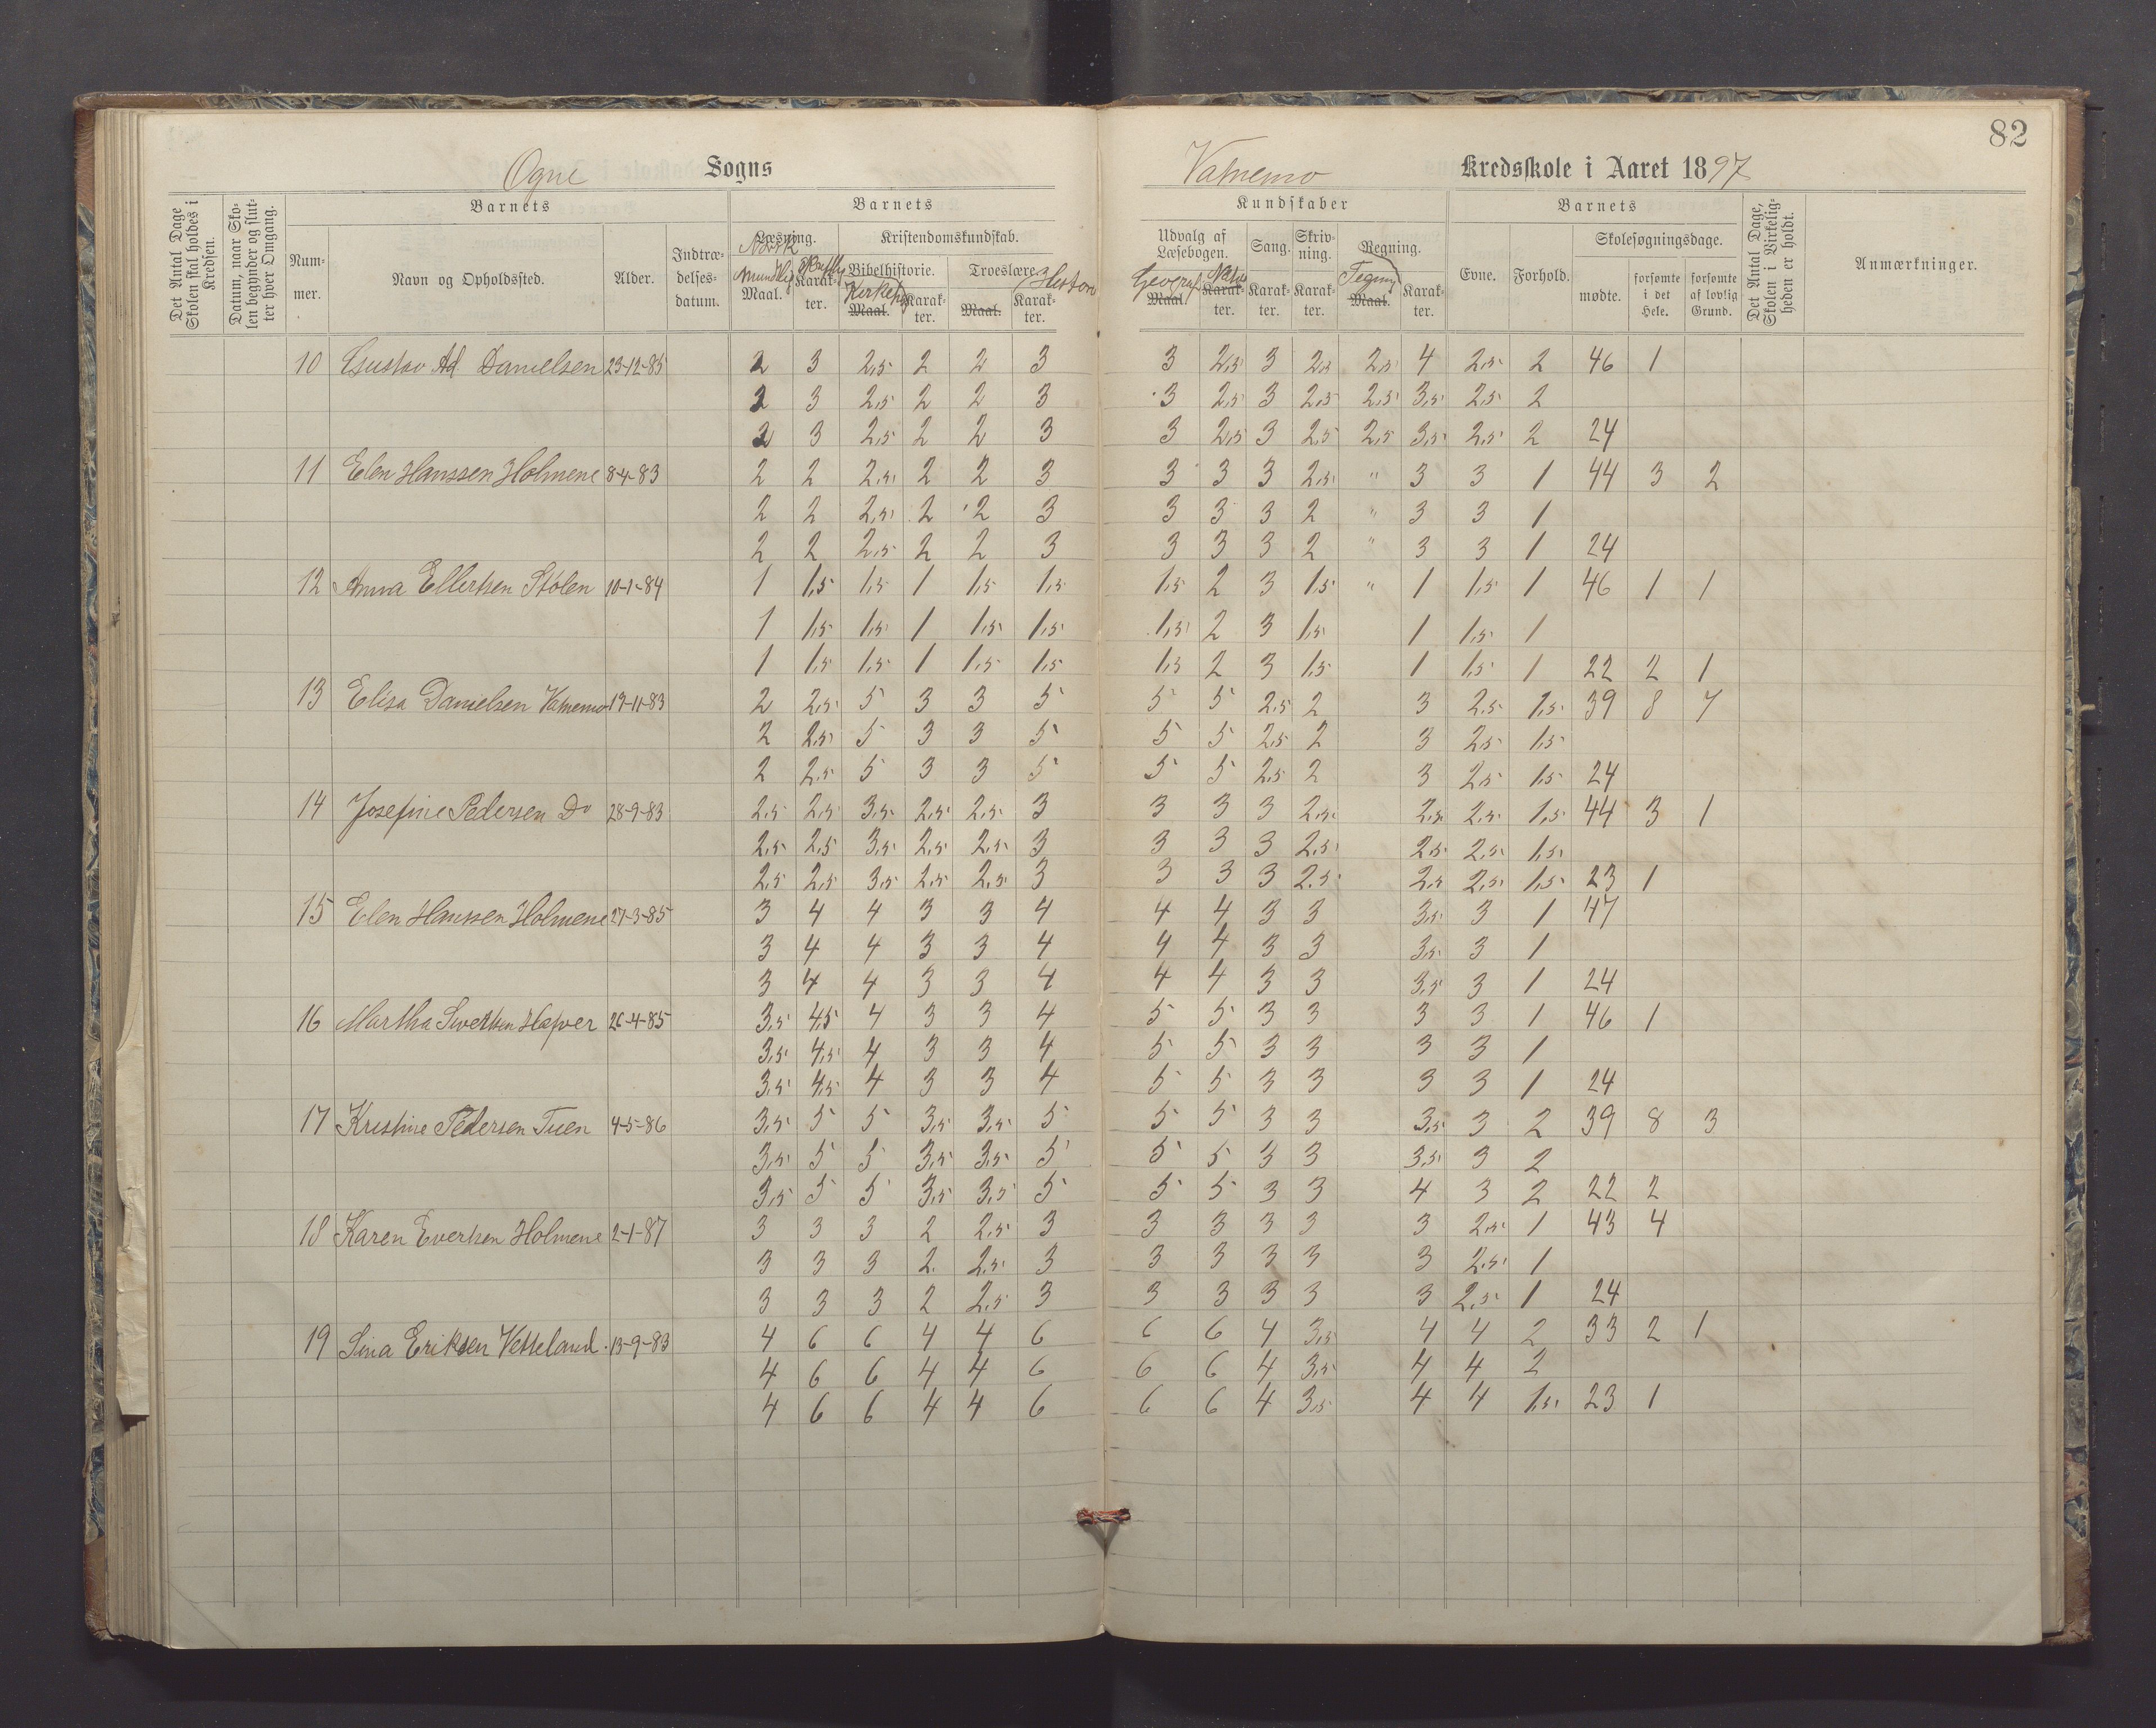 82
Ogne Sogns
Vatnemo Kredsskole i Aaret 1897
Det Antal Dage Skolen skal holdes i Kredsen.
Datum, naar Skolen begynder og slutter hver Omgang.
Barnets
Nummer.
Navn og Opholdssted.
Alder.
Indtrædelsesdatum.
Barnets
Læsning. Norsk
Mundtlig Maal.
Skriftly Karakter.
Kristendomskundskab.
Bibelhistorie.
Maal.
Karakter.
Troeslære.
Maal.
Historie Karakter.
Kundskaber
Udvalg af Læsebogen.
Geograf Maal.
Natur Karakter.
Sang.
Karakter.
Skrivning.
Karakter.
Regning.
Tegning Maal.
Karakter.
Barnets
Evne.
Forhold.
Skolesøgningsdage.
mødte.
forsømte i det Hele.
forsømte af lovlig Grund.
Det Antal Dage, Skolen i Virkeligheden er holdt.
Anmærkninger.
10 Gustav Ad Danielsen 23-12-85 2 3 2,5 2 2 3 3 2,5 3 2,5 2,5 4 2,5 2 46 1
2 3 2,5 2 2 3 3 2,5 3 2,5 2,5 3,5 2,5 2
2 3 2,5 2 2 3 3 2,5 3 2,5 2,5 3,5 2,5 2 24
11 Elen Hanssen Holmene 8-4-83 2 2 2,5 2 2 3 3 3 3 2,5 " 3 3 1 44 3 2
2 2 2,5 2 2 3 3 3 3 2 " 3 3 1
2 2 2,5 2 2 3 3 3 3 2 " 3 3 1 24
12 Anna Ellertsen Stølen 10-1-84 1 1,5 1,5 1 1,5 1,5 1,5 2 3 1,5 " 1 1,5 1 46 1 1
1 1,5 1,5 1 1,5 1,5 1,5 2 3 1,5 1 1,5 1
1 1,5 1,5 1 1,5 1,5 1,5 2 3 1,5 1 1,5 1 22 2 1
13 Elisa Danielsen Vatnemo 17-11-83 2 2,5 5 3 3 5 5 5 2,5 2 3 2,5 1,5 39 8 7
2 2,5 5 3 3 5 5 5 2,5 2 3 2,5 1,5
2 2,5 5 3 3 5 5 5 2,5 2 3 2,5 1,5 24
14 Josefine Pedersen Do 28-9-83 2,5 2,5 3,5 2,5 2,5 3 3 3 3 2,5 2,5 2,5 1,5 44 3 1
2,5 2,5 3,5 2,5 2,5 3 3 3 3 2,5 2,5 2,5 1,5
2,5 2,5 3,5 2,5 2,5 3 3 3 3 2,5 2,5 2,5 1,5 23 1
15 Elen Hanssen Holmene 27-3-85 3 4 4 3 3 4 4 4 3 3 3,5 3 1 47
3 4 4 3 3 4 4 4 3 3 3,5 3 1
3 4 4 3 3 4 4 4 3 3 3,5 3 1 24
16 Martha 26-4-85 3,5 4,5 4 3 3 4 5 5 3 3 3 3 1 46 1
3,5 4,5 4 3 3 4 5 5 3 3 3 3 1
3,5 4,5 4 3 3 4 5 5 3 3 3 3 1 24
17 Kristine Pedersen Tuen 4-5-86 3,5 5 5 3,5 3,5 5 5 5 3 3 3,5 3 2 39 8 3
3,5 5 5 3,5 3,5 5 5 5 3 3 3,5 3 2
3,5 5 5 3,5 3,5 5 5 5 3 3 4 3 2 22 2
18 Karen Evertsen Holmene 2-1-87 3 3 3 2 2,5 3 3 3 3 3 3 2,5 1 43 4
3 3 3 2 2,5 3 3 3 3 3 3 2,5 1
3 3 3 2 2,5 3 3 3 3 3 3 2,5 1 24
19 Sina Eriksen Vetteland 13-9-83 4 6 6 4 4 6 6 6 4 3,5 4 4 2 33 2 1
4 6 6 4 4 6 6 6 4 3,5 4 4 2
4 6 6 4 4 6 6 6 4 3,5 4 4 1,5 23 1